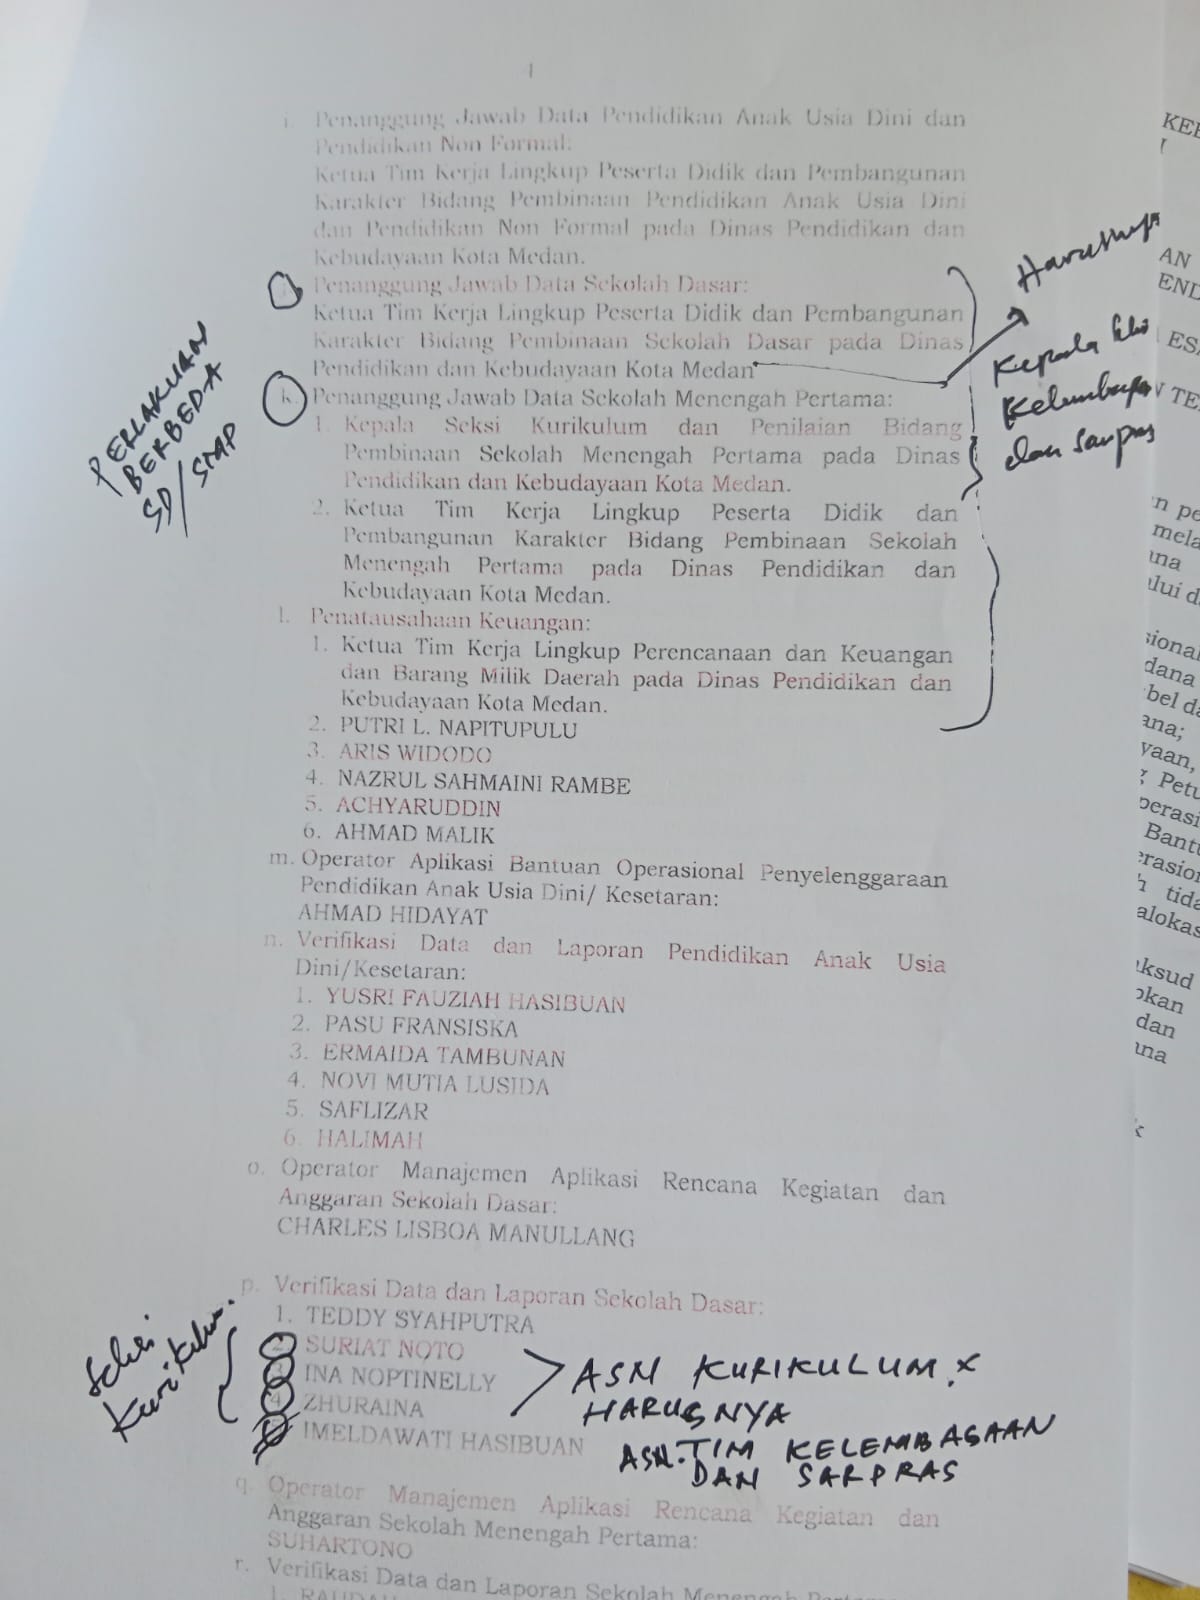 i. Penanggung Jawab Data Pendidikan Anak Usia Dini dan
Pendidikan Non Formal:
Ketua Tim Kerja Lingkup Peserta Didik dan Pembangunan
Karakter Bidang Pembinaan Pendidikan Anak Usia Dini
dan Pendidikan Non Formal pada Dinas Pendidikan dan
Kebudayaan Kota Medan.
Penanggung Jawab Data Sekolah Dasar:
Ketua Tim Kerja Lingkup Peserta Didik dan Pembangunan
Karakter Bidang Pembinaan Sekolah Dasar pada Dinas
Pendidikan dan Kebudayaan Kota Medan
k. Penanggung Jawab Data Sekolah Menengah Pertama:
1. Kepala Seksi Kurikulum dan Penilaian Bidang
Pembinaan Sekolah Menengah Pertama pada Dinas
Pendidikan dan Kebudayaan Kota Medan.
2. Ketua Tim Kerja Lingkup Peserta Didik dan
Pembangunan Karakter Bidang Pembinaan Sekolah
Menengah Pertama pada Dinas Pendidikan dan
Kebudayaan Kota Medan.
l. Penatausahaan Keuangan:
1. Ketua Tim Kerja Lingkup Perencanaan dan Keuangan
dan Barang Milik Daerah pada Dinas Pendidikan dan
Kebudayaan Kota Medan.
2. PUTRI L. NAPITUPULU
3. ARIS WIDODO
4. NAZRUL SAHMAINI RAMBE
5. ACHYARUDDIN
6. AHMAD MALIK
m. Operator Aplikasi Bantuan Operasional Penyelenggaraan
Pendidikan Anak Usia Dini/ Kesetaran:
AHMAD HIDAYAT
n. Verifikasi Data dan Laporan Pendidikan Anak Usia
Dini/Kesetaran:
1. YUSRI FAUZIAH HASIBUAN
2. PASU FRANSISKA
3. ERMAIDA TAMBUNAN
4. NOVI MUTIA LUSIDA
5. SAFLIZAR
6. HALIMAH
o. Operator Manajemen Aplikasi Rencana Kegiatan dan
Anggaran Sekolah Dasar:
CHARLES LISBOA MANULLANG
p. Verifikasi Data dan Laporan Sekolah Dasar:
1. TEDDY SYAHPUTRA
2. SURIAT NOTO
3. INA NOPTINELLY
4. ZHURAINA
IMELDAWATI HASIBUAN
q. Operator Manajemen Aplikasi Rencana Kegiatan dan
Anggaran Sekolah Menengah Pertama:
SUHARTONO
r. Verifikasi Data dan Laporan Sekolah Menengah
PERLAKUAN
BERBEDA
SD/SMP
Harusnya
Kepala
Kelembagaan
dan Sarpras
Seksi
Kurikulum.
ASN KURIKULUM x
HARUSNYA
ASN. TIM KELEMBAGAAN
DAN SARPRAS
AN
END
ESA
TE
n pe
mela
ana
lui d
sional
dana
bel da
ana;
yaan,
g Petu
perasi
Bantu
erasion
h tida
alokas
ksud
okan
dan
ana